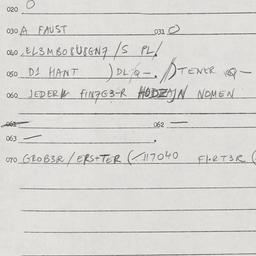 020 O
030 A FAUST 031 O
040 EL3MBO8U8GN7 /S PL/
050 D1 HANT )DL/Q-. /)TENER Q-
060 JEDER FIN7G3-R NOMEN
061 — 062 —
063 —
070 GROB3R/ERS+TER (-/117040 FI-RT3R (